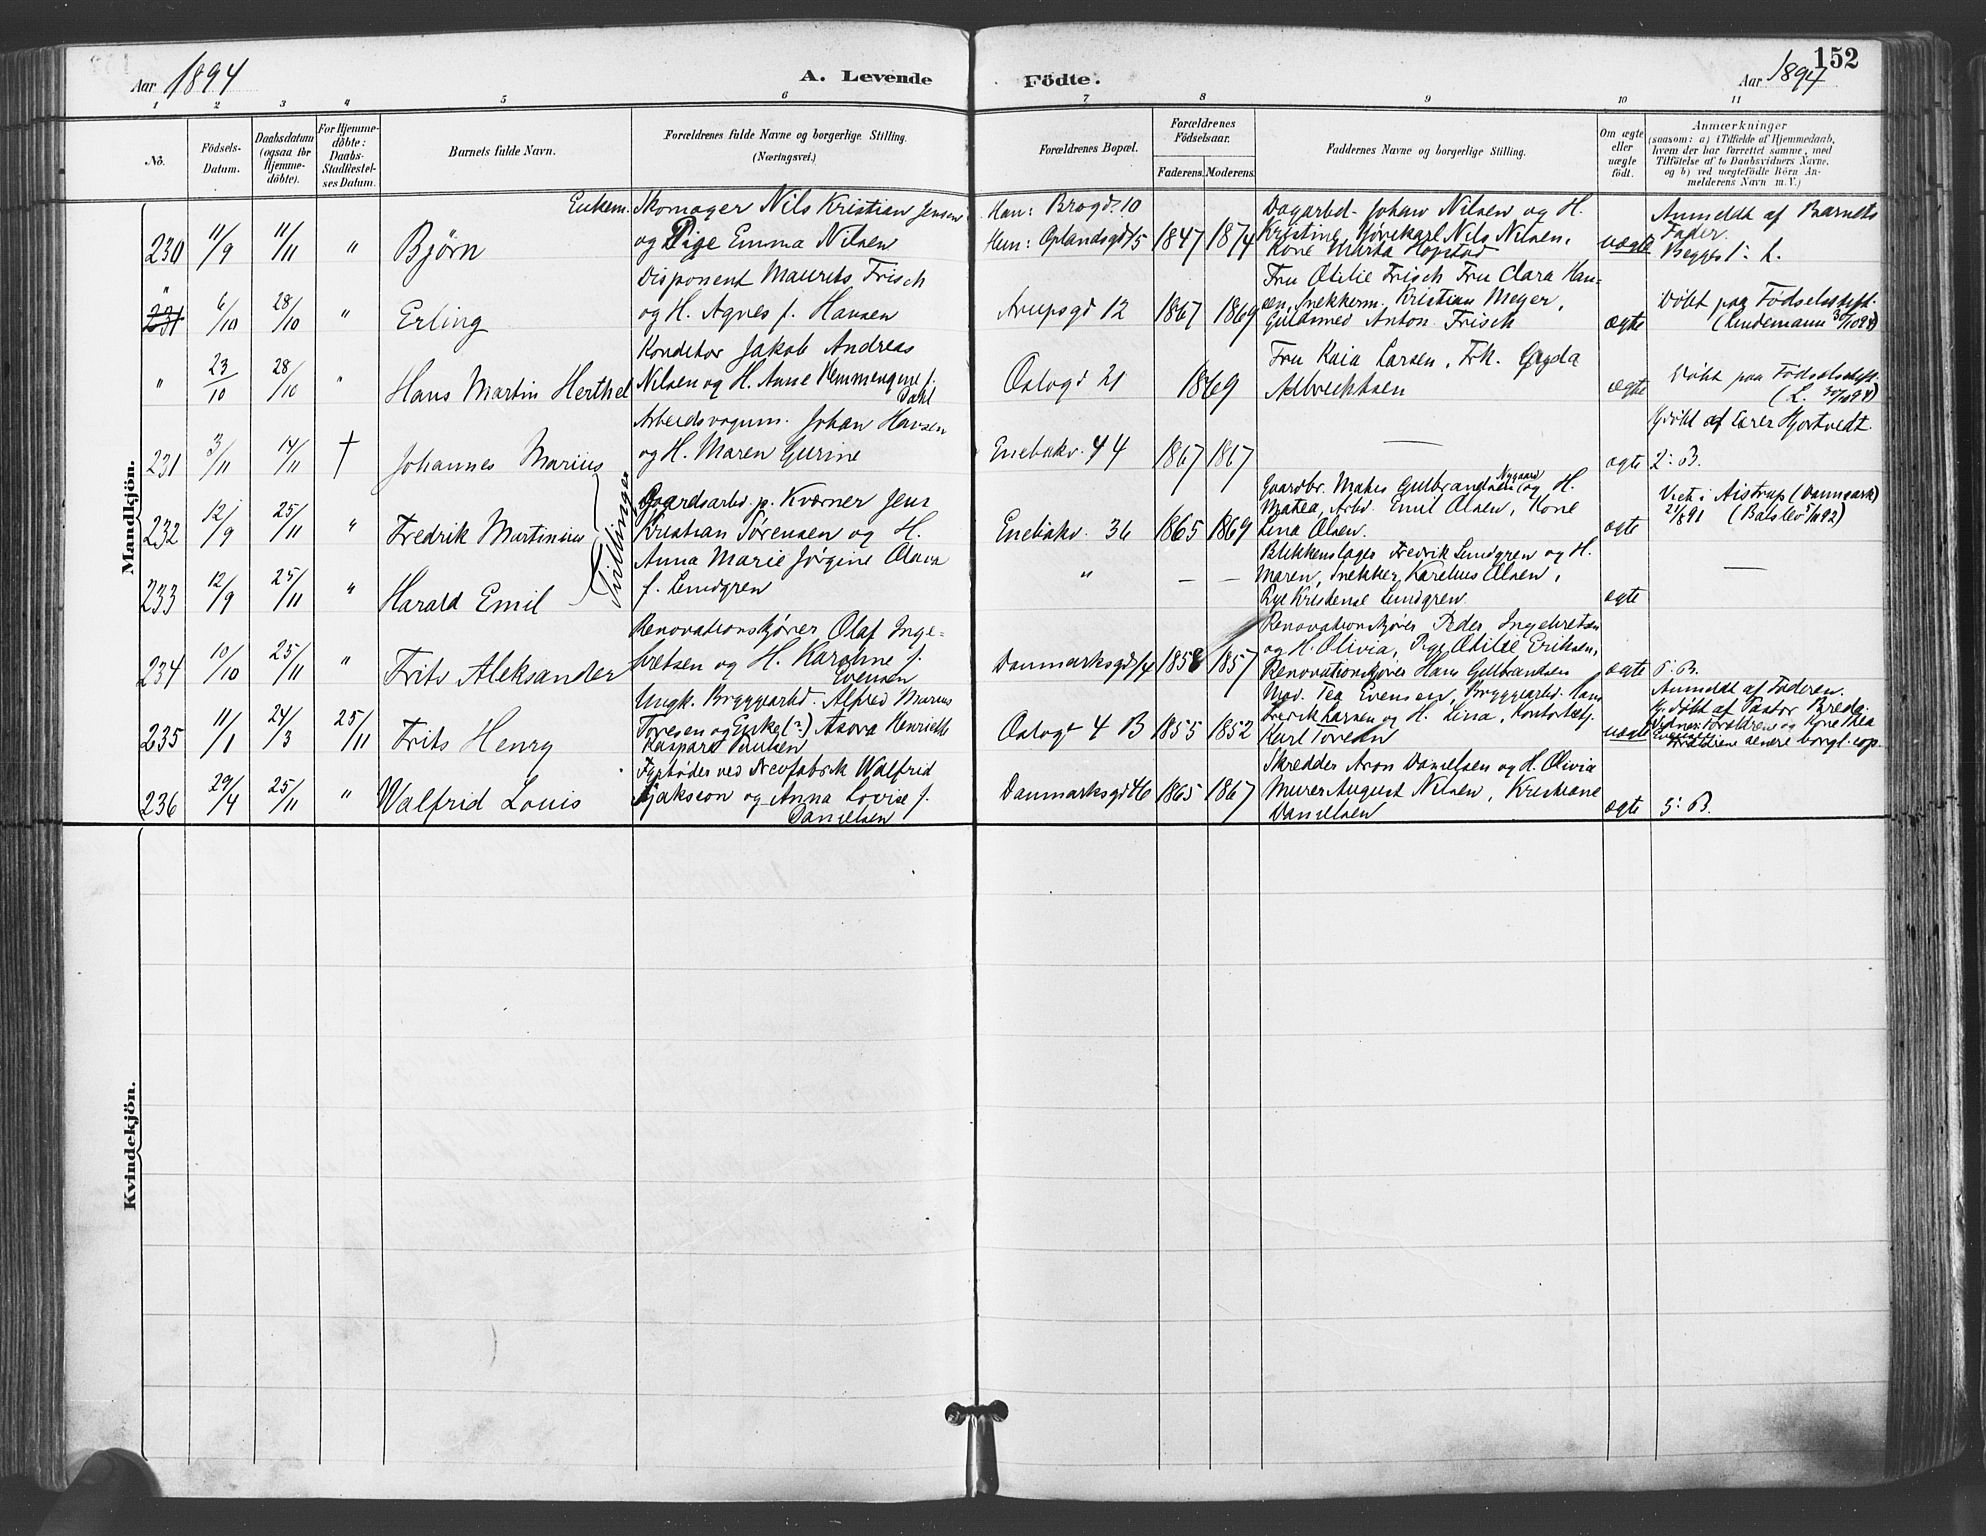 152
Aar 1894
A. Levende Födte.
Aar 1894
1 2 3 4 5 6 7 8 9 10 11
No.
Födsels-Datum.
Daabsdatum (ogsaa for Hjemme-döbte).
For Hjemme-döbte: Daabs-Stadfæstel-ses Datum.
Barnets fulde Navn.
Forældrenes fulde Navne og borgerlige Stilling.
(Næringsvei.)
Forældrenes Bopæl.
Forældrenes Födselsaar.
Faderens. Moderens.
Faddernes Navne og borgerlige Stilling.
Om ægte eller uægte födt.
Anmærkninger
(saasom: a) i Tilfælde af Hjemmedaab,
hvem der har forrettet samme, med
Tilföielse af to Daabsvidners Navne.
og b) ved uægtefödte Börn An-
melderens Navn m. V.)
Mandkjön.
Enkem. Skomager Nils Kristian Jensen
og Pige Emma Nilsen
230 11/9 11/11 " Bjørn
Han: Brogd. 10
Hun: Oplandsgd 15 1847 1874
Dagarbd. Johan Nilsen og H.
Kristine, Nils Nilsen,
Kone Marta Hopstad
uægte
Anmeldt af Barnets
Fader.
Begges 1: L.
"
231 6/10 28/10 " Erling
Disponent Maurits Frisch
og H. Agnes f. Hansen
Arupsgd 12 1867 1869
Fru Otilie Frisch Fru Clara Han-
sen, Snekkerm. Kristian Meyer,
Guldsmed Anton Frisch
ægte
Døbt paa Fødselsstift.
(Lindemann 30/10 94)
" 23/10 28/10 " Hans Martin Herthel
Konditor Jakob Andreas
Nilsen og H. Anne f.
Dahl
Oslogd 21 1869
Fru Kaia Larsen, Frk. Gyda
Albrechtsen
ægte
Døbt paa Fødselsstift.
(L. 30/10 94)
231 3/11 14/11 † Johannes Marius
Arbeidsvogum. Johan Hansen
og H. Maren Gurine
Enebakv. 44 1867 1867
—
ægte
Hjdøbt af Lærer Hjortvedt.
2: B.
232 12/9 25/11 " Fredrik Martinius
Tvillinger
Gaardsarbd. p. Kværner Jens
Kristian Sørensen og H.
Anna Marie Jørgine Olava
f. Lundgren
Enebakv. 36 1865 1869
Gaardbr. Mates Gulbrandsen Nygaard og H.
Matea, Arbd. Emil Olsen, Kone
Lina Olsen.
ægte
Viet i Aistrup (Danmark)
21/8 91 (Balslev 5/11 92)
233 12/9 25/11 " Harald Emil
" — —
Blikkenslager Fredrik Lundgren og H.
Maren, Snekker Karelius Olsen,
Pige Kristense Lundgren.
ægte
—
234 10/10 25/11 " Frits Aleksander
Renovationskjører Olaf Inge-
bretsen og H. Karoline f.
Evensen
Danmarksgd 14 1858 1857
Renovationskjører Peder Ingebretsen
og H. Olivia, Pige Otilde Eriksen,
Renovationskjører Hans Gulbrandsen
ægte
5: B.
235 11/1 24/3 25/11 Frits Henry
Ungk. Bryggearbd. Alfred Marius
Toresen og Enke (?) Asora Henriette
Kaspara Paulsen
Oslogt 4 B 1855 1852
Mad. Tea Evensen, Bryggearbd. Hans
Fredrik Larsen og H. Lina, Kontorbetj.
Karl Toresen
uægte
Anmeldt af Faderen.
Hj. døbt af Pastor Bredo
Vidner: Forældrene og Kone Thea
Forældrene senere borgl. cop.
236 29/4 25/11 " Walfrid Louis
Fyrbøder ved Walfrid
Isakson og Anna Lovise f.
Danielsen
Danmarksgd 46 1865 1867
Skredder Aron Danielsen og H. Olivia
Murer August Nilsen, Kristiane
Danielsen
ægte
5: B.
Kvindekjön.